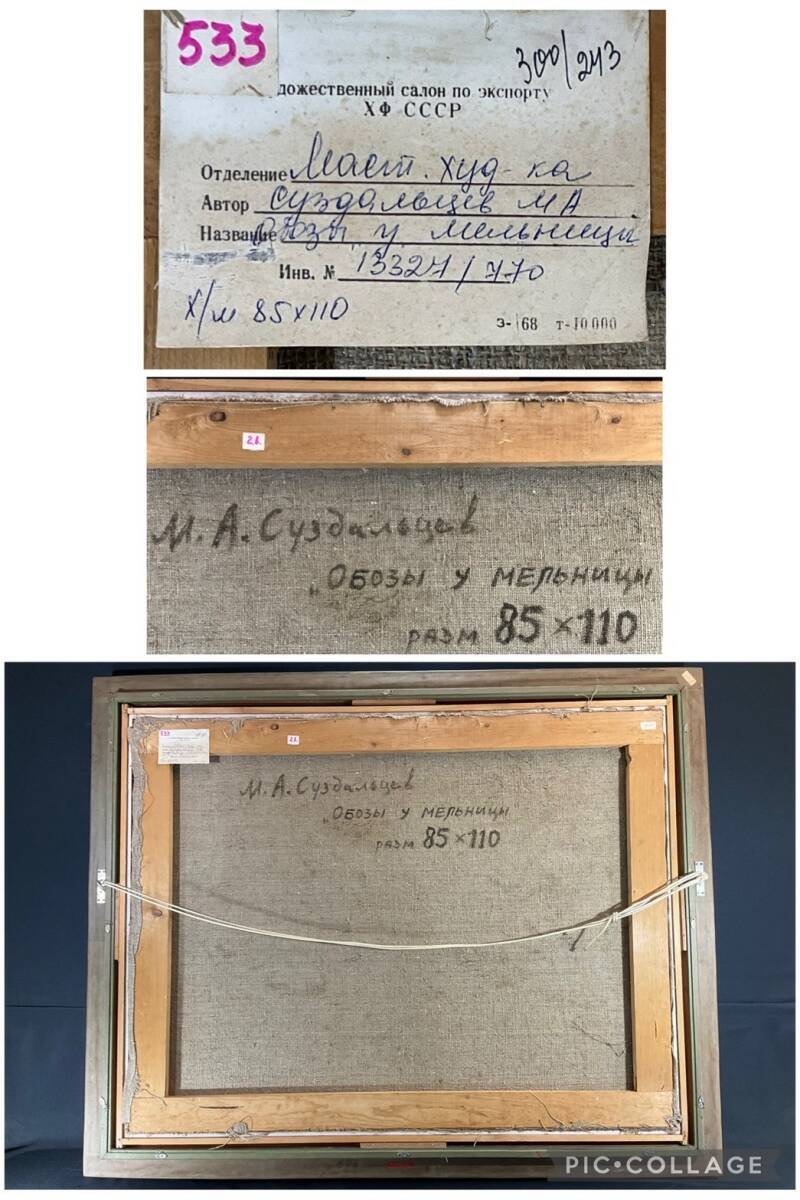 533
300/243
дожественный салон по экспорту
ХФ СССР
Отделение Маст. худ-ка
Автор Суздальцев МА
Название Обозы у мельницы
Инв. № 13327/770
Х/м 85х110
З- 68 т-10 000
М.А.Суздальцев
„Обозы у мельницы
разм 85×110
533
М.А.Суздальцев
„Обозы у мельницы"
разм 85×110
PIC•COLLAGE